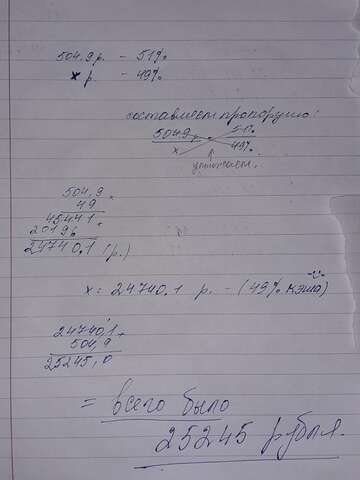 504,9 р. - 51%
x р - 49%
составляем пропорцию:
504,9 51%
x 49%
умножаем.
504,9
49
45441
20196
24740,1 (р.)
x = 24740,1 р. - (49% кэша)
24740,1 +
504,9
25245,0
= всего было
25245 рубля.